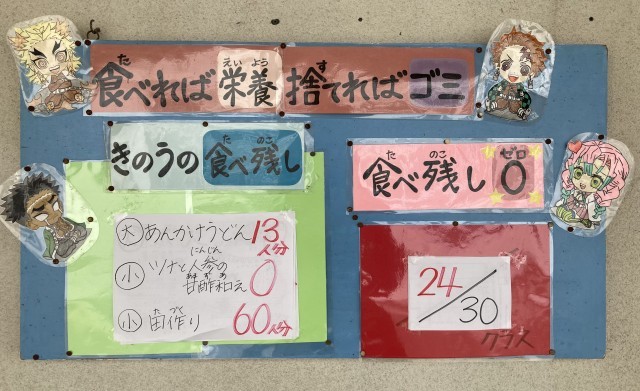 食べれば栄養 捨てればゴミ
きのうの食べ残し
大 あんかけうどん 13人分
小 ツナと人参の甘酢和え 0
小 田作り 60人分
食べ残し0
24/30
クラス